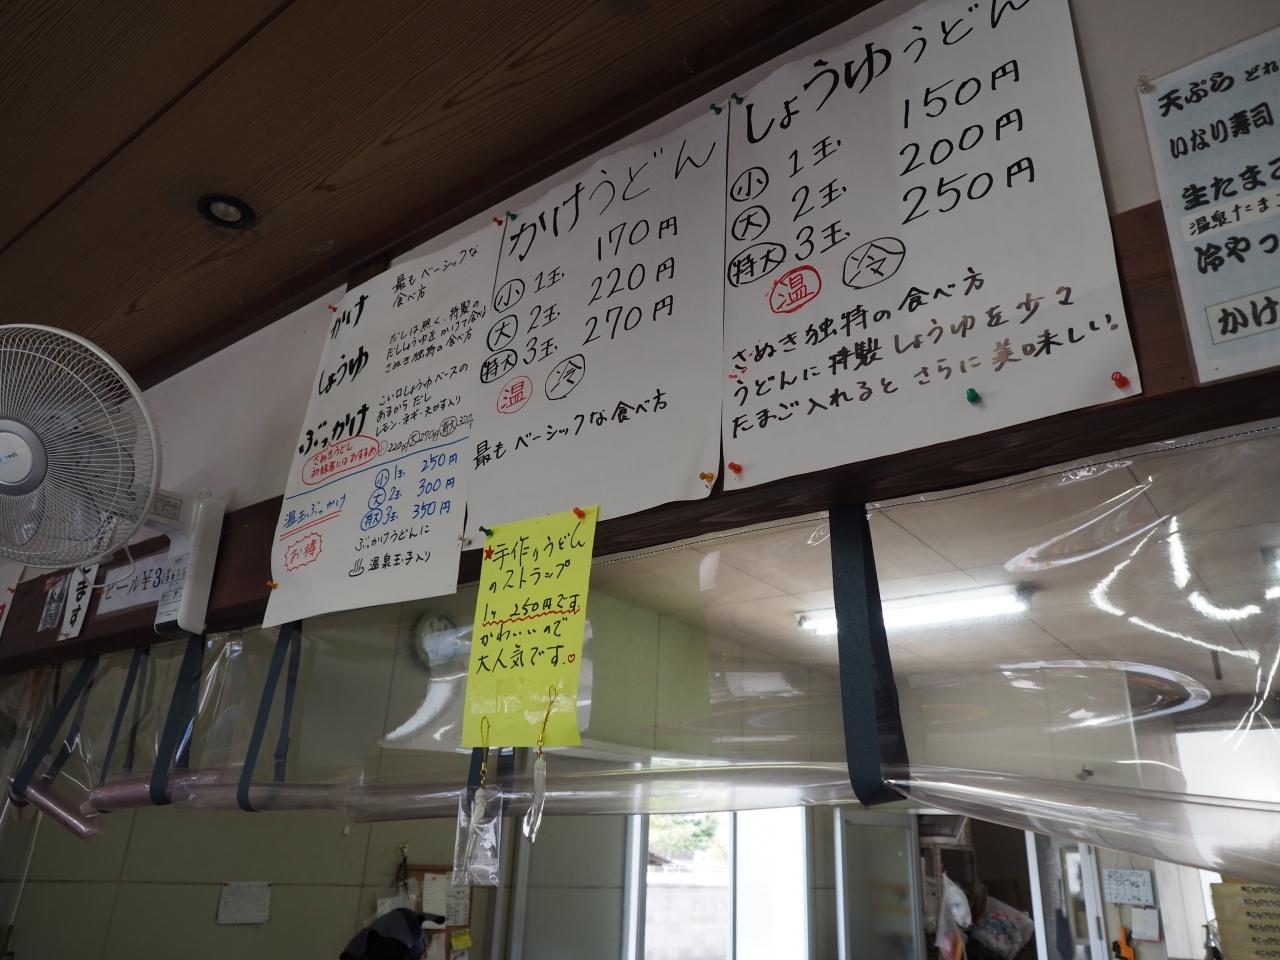 かけ
最も ベーシックな
食べ方
しょうゆ
だしは無く、特製の
だしょうゆをかけて食べる
さぬき独特の食べ方
ぶっかけ
こい口しょうゆベースの
あまから だし
レモン・ネギ・天かす入り
小220円 大270円 特大320円
さぬきうどん
初経者にはおすすめ
温玉ぶっかけ
お得
小 1玉 250円
大 2玉 300円
特大 3玉 350円
ぶっかけうどんに
♨温泉玉子入り
かけうどん
小 1玉 170円
大 2玉 220円
特大 3玉 270円
温 冷
最も ベーシックな食べ方
しょうゆうどん
小 1玉 150円
大 2玉 200円
特大 3玉 250円
温 冷
さぬき独特の食べ方
うどんに特製しょうゆを少々
たまご入れるとさらに美味しい。
天ぷら どれ
いなり寿司
生たまご
温泉たま
冷やっ
かけ
ビール¥3
ます
★手作りうどん
のストラップ
1ヶ 250円です
かわいいので
大人気です。♡